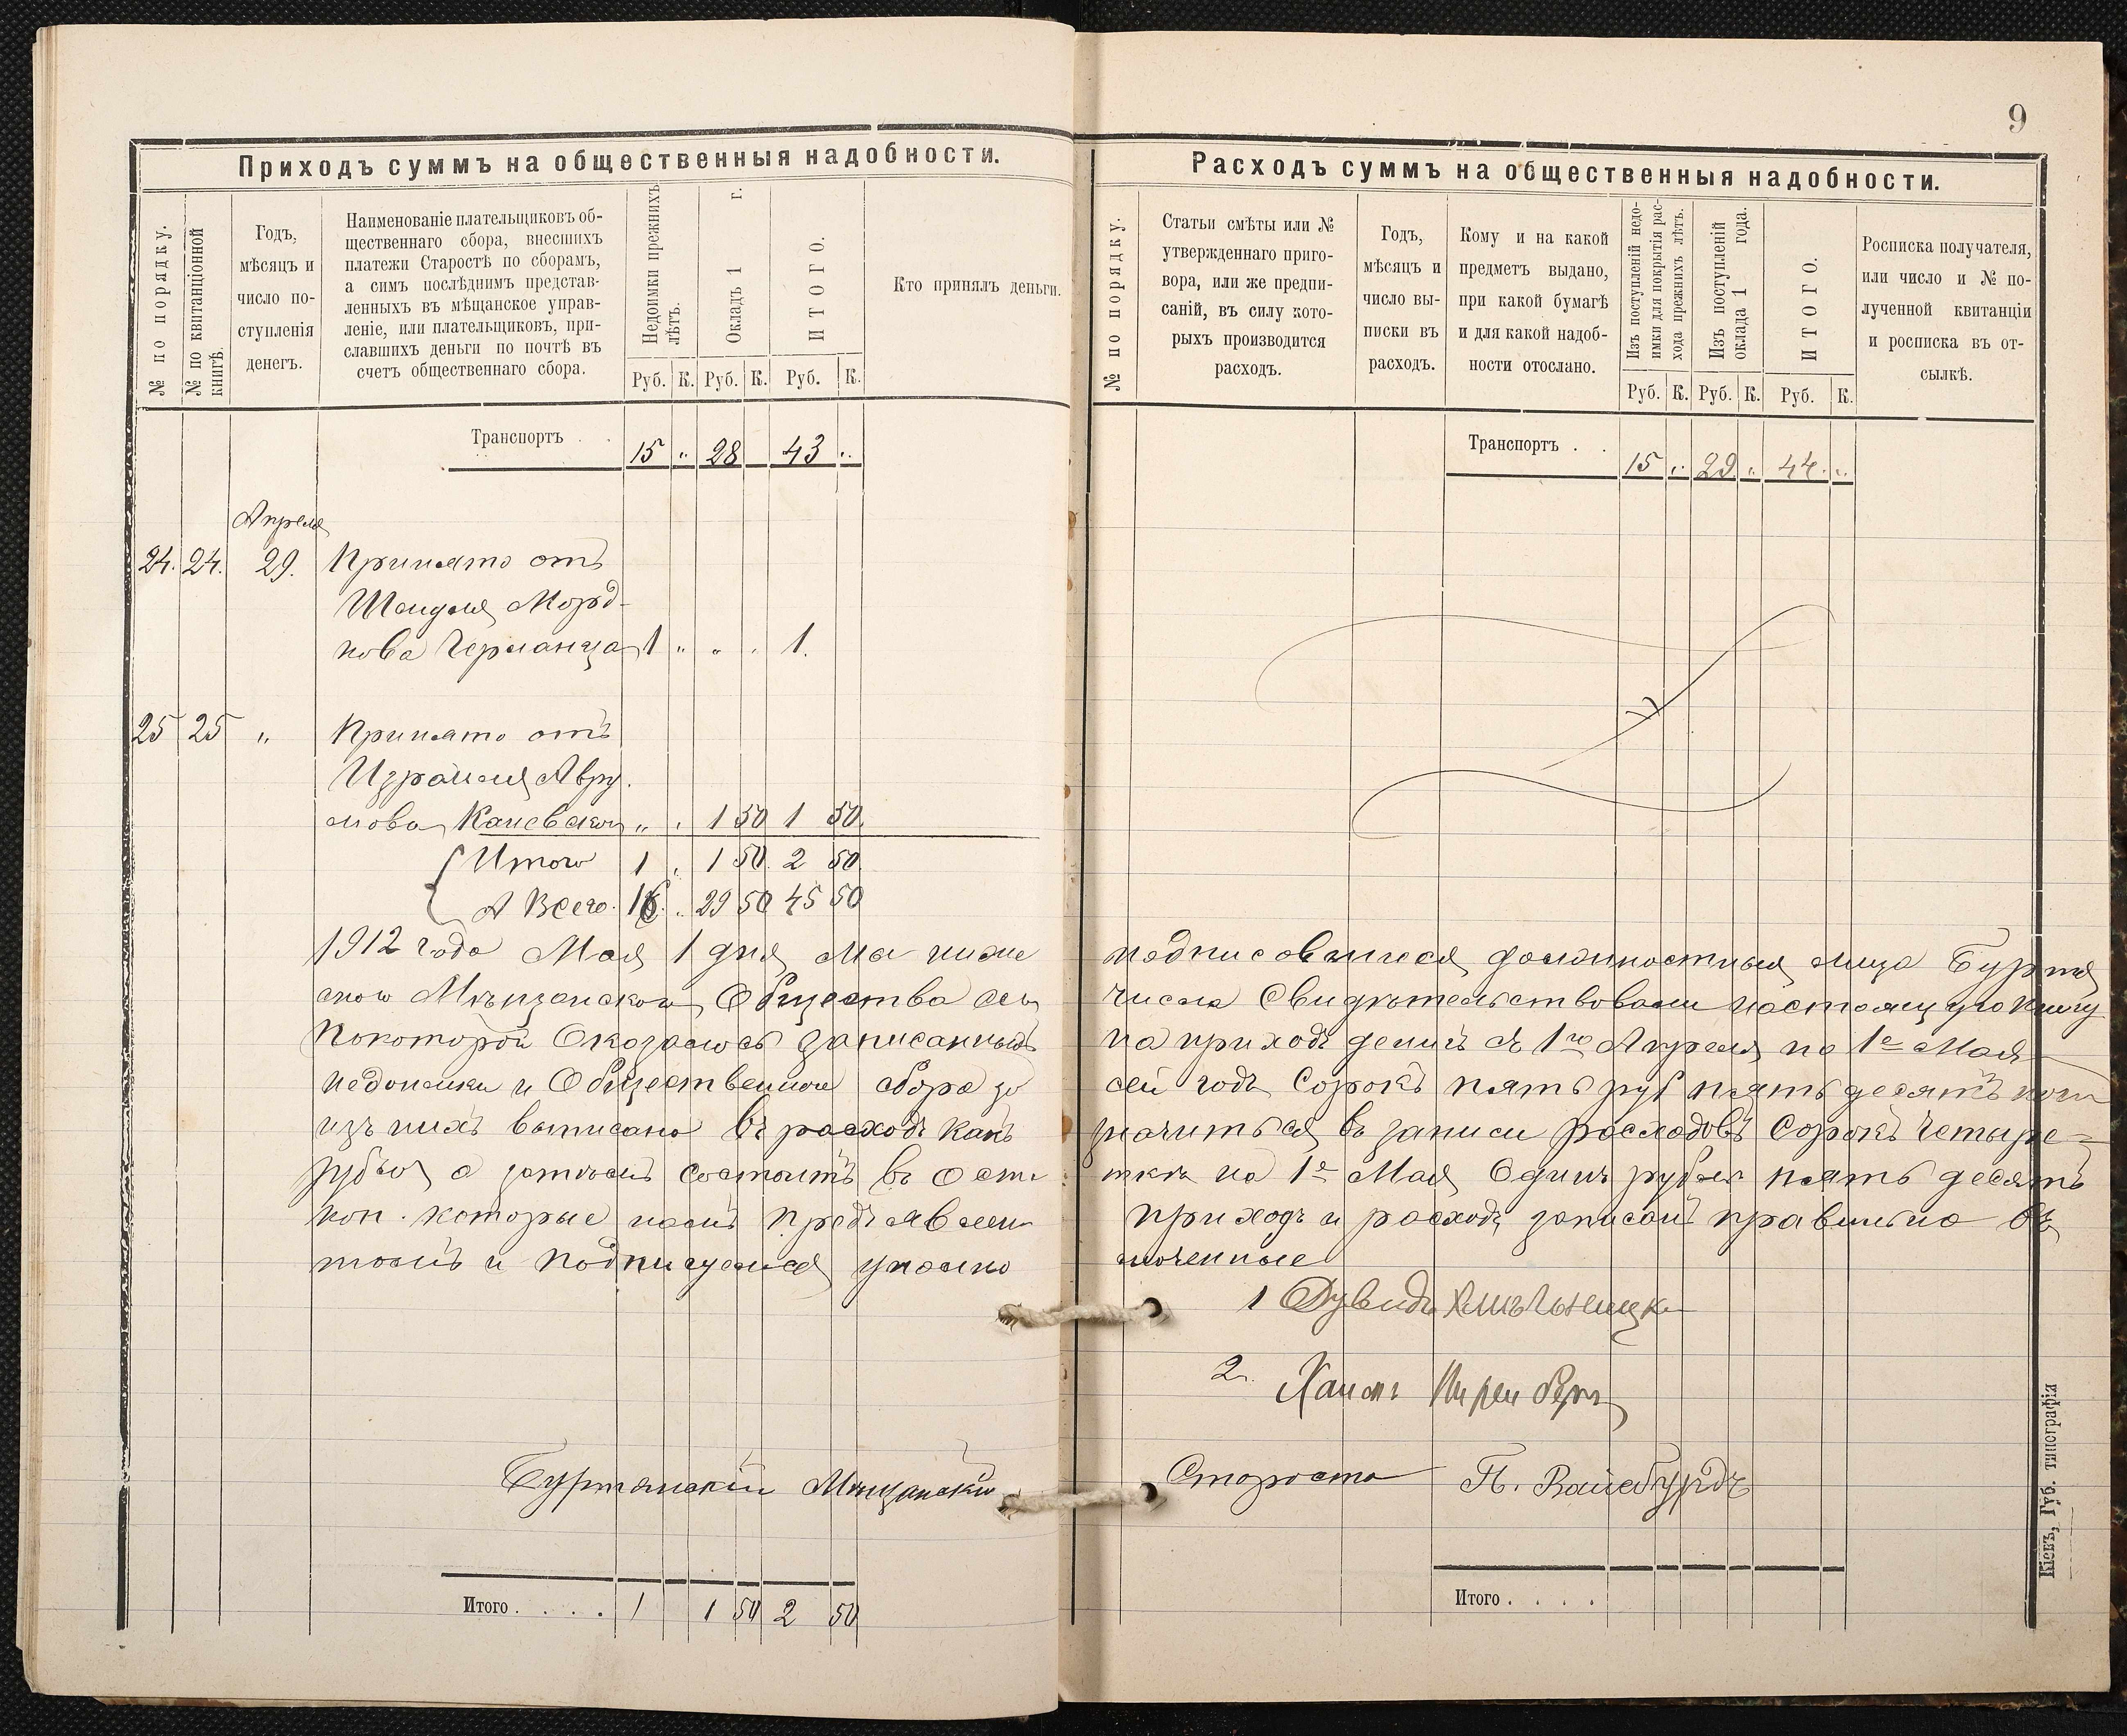 9
Приходъ суммъ на общественныя надобности.
№ по порядку.
№ по квитанціонной
книгѣ.
Годъ,
мѣсяцъ и
число по-
ступленія
денегъ.
Наименованіе плательщиковъ об-
щественнаго сбора, внесшихъ
платежи Старостѣ по сборамъ,
а симъ послѣднимъ представ-
ленныхъ въ мѣщанское управ-
леніе, или плательщиковъ, при-
славшихъ деньги по почтѣ въ
счетъ общественнаго сбора.
Недоимки прежнихъ
лѣтъ.
Окладъ 1 г.
ИТОГО.
Руб. К. Руб. К. Руб. К.
Кто принялъ деньги.
Транспортъ . . 15 " 28 43 "
Апреля
24. 24. 29. Принято отъ
Шендля Морд-
кова Германца 1 " " " 1.
25 25 " Принято отъ
Израиля Авру-
мова Каневского " . 1 50 1 50
Итого 1 . 1 50. 2 50.
А Всего. 16. . 29 50 45 50
1912 года Мая 1 дня Мы ниже
ского Мѣщанского Общества
По которой Оказалось записанныхъ
недоимки и Общественного сбора за
изъ нихъ выписано въ расходъ какъ
рубля а затѣмъ состоитъ въ Оста
коп. которые намъ предъявлен
томъ и подписуемся уполно
Буртянскій Мѣщанскій
Итого . . . . . 1 1 50 2 50
Расходъ суммъ на общественныя надобности.
№ по порядку.
Статьи смѣты или №
утвержденнаго приго-
вора, или же предпи-
саній, въ силу кото-
рыхъ производится
расходъ.
Годъ,
мѣсяцъ и
число вы-
писки въ
расходъ.
Кому и на какой
предметъ выдано,
при какой бумагѣ
и для какой надоб-
ности отослано.
Изъ поступленій недо-
имки для покрытія рас-
хода прежнихъ лѣтъ.
Изъ поступленій
оклада 1 года.
ИТОГО.
Руб. К. Руб. К. Руб. К.
Росписка получателя,
или число и № по-
лученной квитанціи
и росписка въ от-
сылкѣ.
Транспортъ . . 15 " 29 " 44 "
подписавшиеся должностныя лица Буртя
числа Свидѣтельствовали настоящую книгу
на приходъ денигъ съ 1го Апреля по 1е Мая
сей годъ Сорокъ пять руб пятьдесятъ коп
значиться въ записи расходовъ Сорокъ четыре
ткѣ на 1е Мая Одинъ рубль пять десятъ
приходъ и расходъ записанъ правильно въ
моченные
1 Дувидъ Хмѣльницки
2. Хаимъ
Староста П. Вайсбурдъ
Итого . . . .
Кіевъ, Губ. типографія